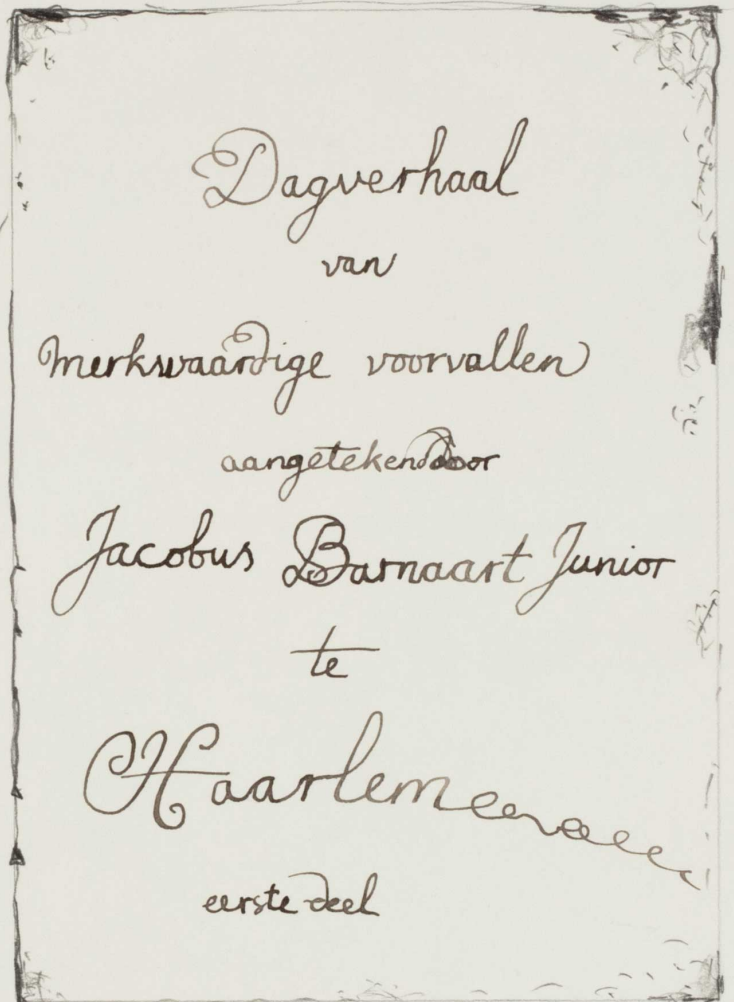 Dagverhaal
van
merkwaardige voorvallen
aangetekend door
Jacobus Barnaart Junior
te
Haarlem
eerste deel